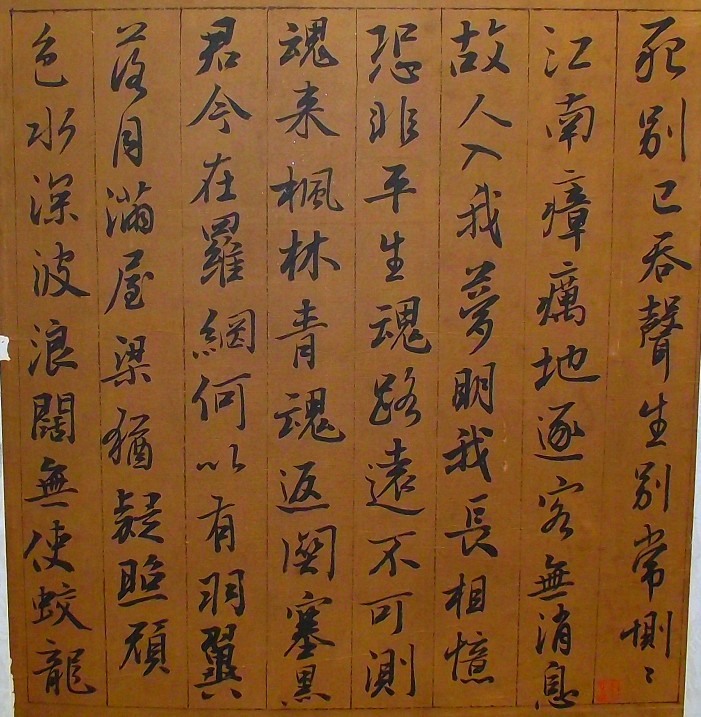 死别已吞聲生别常惻〻
江南瘴癘地逐客無消息
故人入我夢明我長相憶
恐非平生魂路遠不可測
魂来楓林青魂返関塞黒
君今在羅網何以有羽翼
落月滿屋梁猶疑照顔
色水深波浪闊無使蛟龍